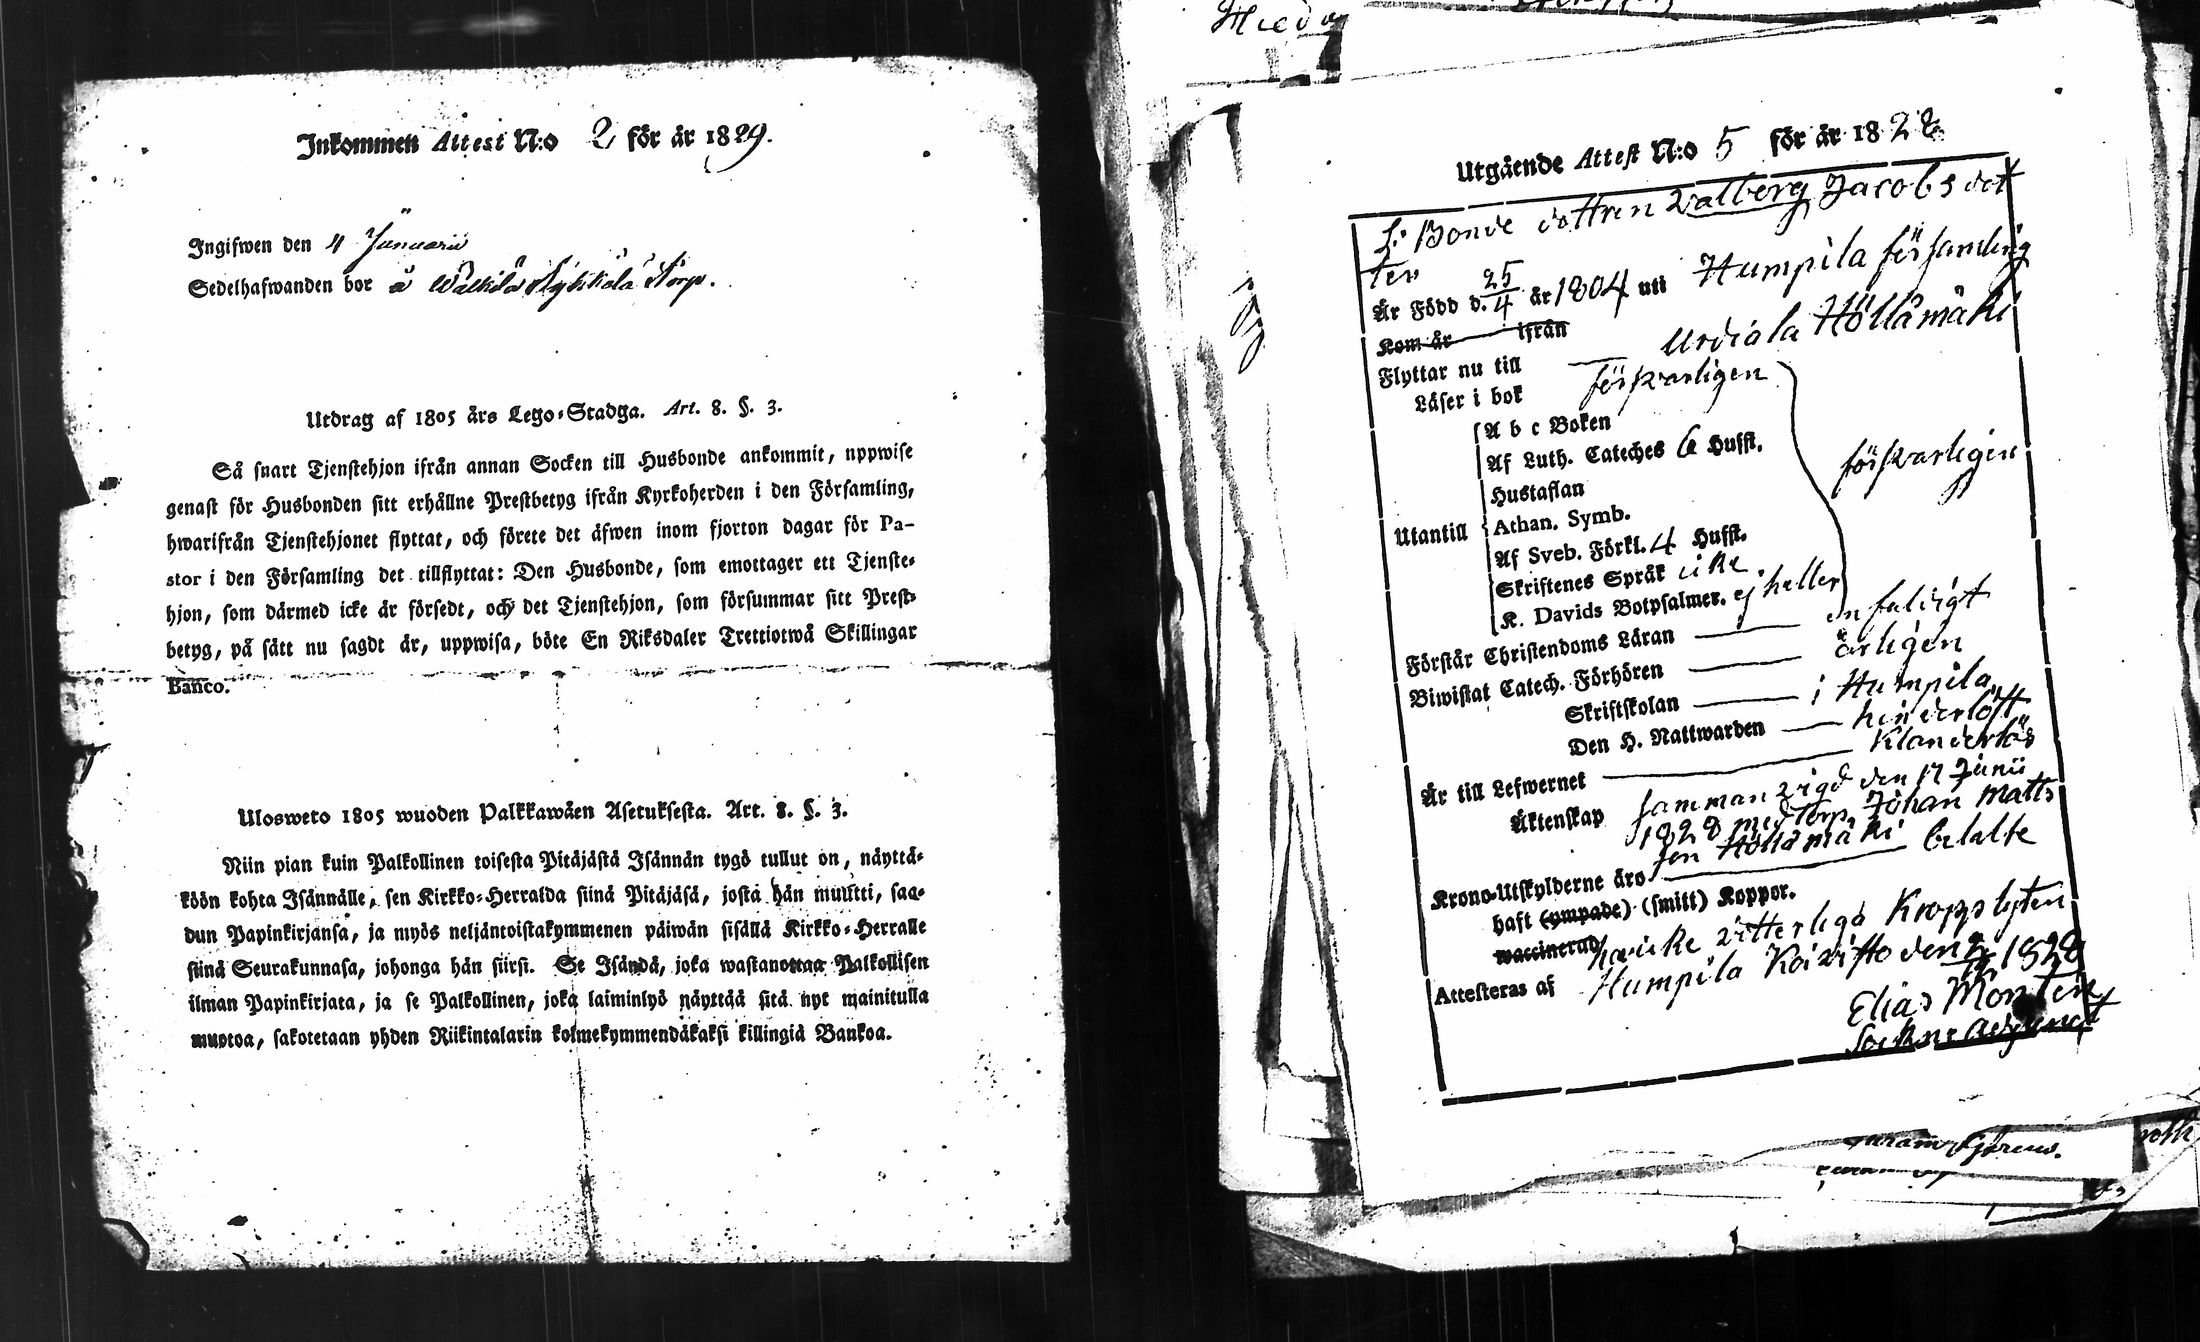 Inkommen Attest N:o 2 för år 1829.
Ingifwen den 4 Januarii
Sedelhafwanden bor å Wälkilä Kykkälä Torp.
Utdrag af 1805 års Lego-Stadga. Art. 8. §. 3.
Så snart Tjenstehjon ifrån annan Socken till Husbonde ankommit, uppwise
genast för Husbonden sitt erhållne Prestbetyg ifrån Kyrkoherden i den Församling,
hwarifrån Tjenstehjonet flyttat, och förete det äfwen inom fjorton dagar för Pa-
stor i den Församling det tillflyttat: Den Husbonde, som emottager ett Tjenste-
hjon, som därmed icke är försedt, och det Tjenstehjon, som försummar sitt Prest-
betyg, på sätt nu sagdt är, uppwisa, böte En Riksdaler Trettiotwå Skillingar
Banco.
Ulosweto 1805 wuoden Palkkawäen Asetuksesta. Art. 8. §. 3.
Niin pian kuin Palkollinen toisesta Pitäjästä Isännän tygö tullut on, näyttä-
köön kohta Isännälle, sen Kirkko-Herralda siinä Pitäjäsä, josta hän muutti, saa-
dun Papinkirjansa, ja myös neljäntoistakymmenen päiwän sisällä Kirkko-Herralle
siinä Seurakunnasa, johonga hän siirsi. Se Isändä, joka wastanottaa Palkollisen
ilman Papinkirjata, ja se Palkollinen, joka laiminlyö näyttää sitä nyt mainitulla
muotoa, sakotetaan yhden Riikintalarin kolmekymmendäkaksi killingiä Bankoa.
Utgående Attest N:o 5 för år 1828
Bonde dottren Walberg Jacobs dot
ter
Är Född d. 25/4 år 1804 uti Humpila församling
Kom år ifrån
Flyttar nu till Urdiala Höllämäki
Läser i bok försvarligen
A b c Boken
Af Luth. Cateches 6 Hufst.
Hustaflan
Utantill Athan. Symb. försvarligen
Af Sveb. Förkl. 4 Hufst.
Skriftenes Språk icke
K. Davids Botpsalmer. ej heller
Förstår Christendoms Läran enfaldigt
Biwistat Catech. Förhören årligen
Skriftskolan i Humpila
Den H. Nattwarden
Är till Lefwernet Klanderlös
Äktenskap sammanvigd den 17 Junii
1828 med Torp. Johan Matts
son Höllämäki
Krono-Utskylderne äro betalte
haft (ympade) (smitt) Koppor.
waccinerad har icke vitterliga Kropps lyten
Attesteras af Humpila Koivisto den 1828
Elias Montin
Sockne adjunct